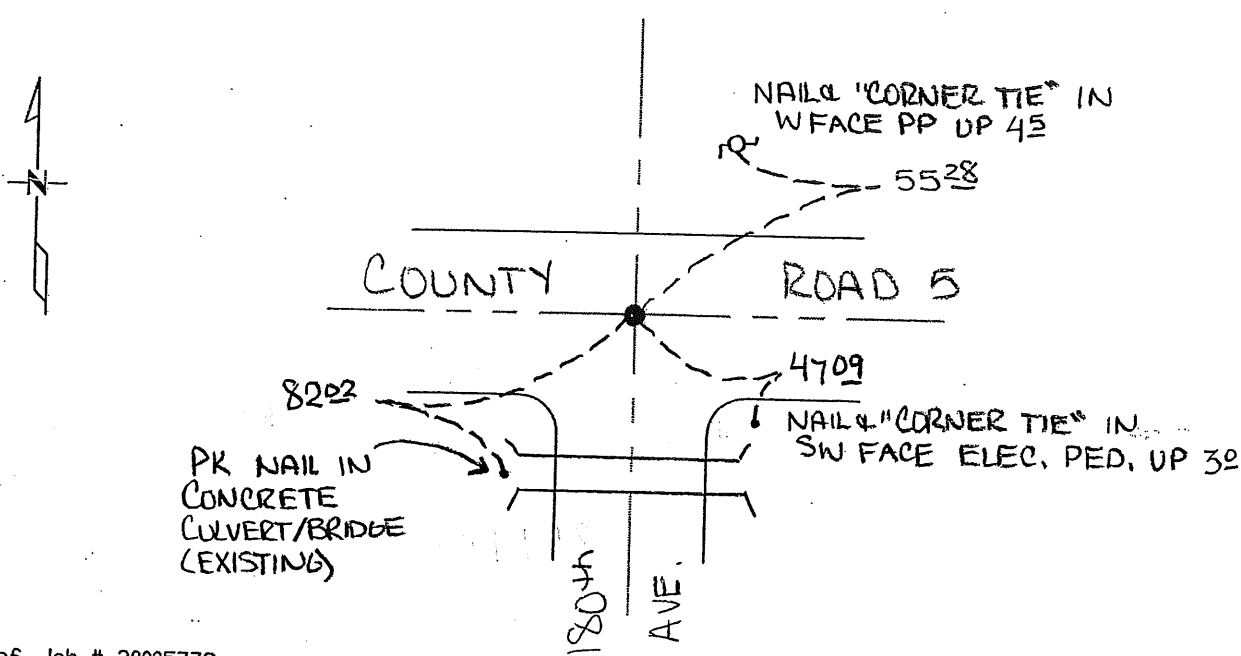 NAIL & "CORNER TIE" IN
W FACE PP UP 4 5
55 28
N
COUNTY ROAD 5
47 09
82 02
NAIL & "CORNER TIE" IN
SW FACE ELEC. PED. UP 3 0
PK NAIL IN
CONCRETE
CULVERT/BRIDGE
(EXISTING)
180th
AVE.